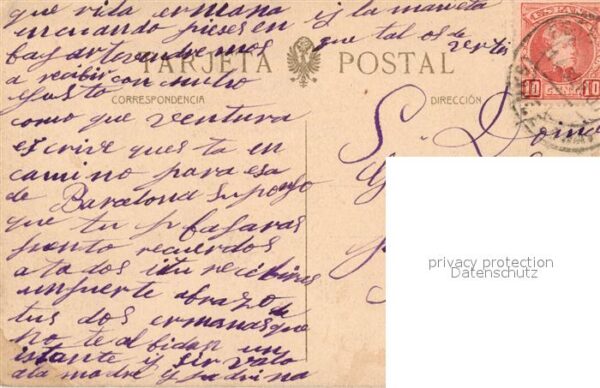 que vida ermana iy la maneta
encuando pieses en que tal os de
bag arte vendremos vertir
a recibir con mucho
gusto
TARJETA POSTAL
CORRESPONDENCIA
DIRECCIÓN
ESPAÑA
10 CENT. 10
como que ventura
escrive ques ta en
camino para esa
de Barcelona supongo
que tu p bagaras
pronto recuerdos
a tados i tu recibiras
un fuerte abrazo de
tus dos ermanas que
no te albidan un
istante iy
a la madre y padrina
privacy protection
Datenschutz